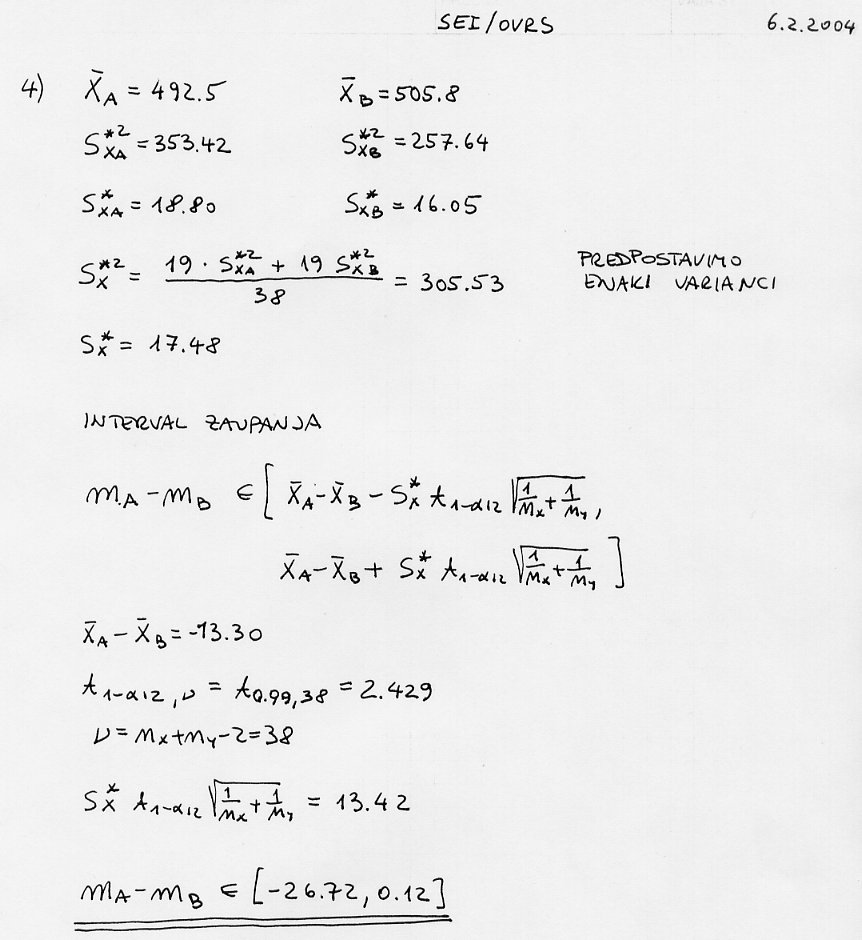 SEI/OVRS 6.2.2004
4) X̄_A = 492.5 X̄_B = 505.8
S*²_XA = 353.42 S*²_XB = 257.64
S*_XA = 18.80 S*_XB = 16.05
S*²_X = (19 · S*²_XA + 19 S*²_XB) / 38 = 305.53 PREDPOSTAVIMO
ENAKI VARIANCI
S*_X = 17.48
INTERVAL ZAUPANJA
m_A - m_B ∈ [ X̄_A - X̄_B - S*_X t_1-α/2 √(1/n_x + 1/n_y) ,
X̄_A - X̄_B + S*_X t_1-α/2 √(1/n_x + 1/n_y) ]
X̄_A - X̄_B = -13.30
t_1-α/2,ν = t_0.99,38 = 2.429
ν = n_x + n_y - 2 = 38
S*_X t_1-α/2 √(1/n_x + 1/n_y) = 13.42
m_A - m_B ∈ [-26.72, 0.12]